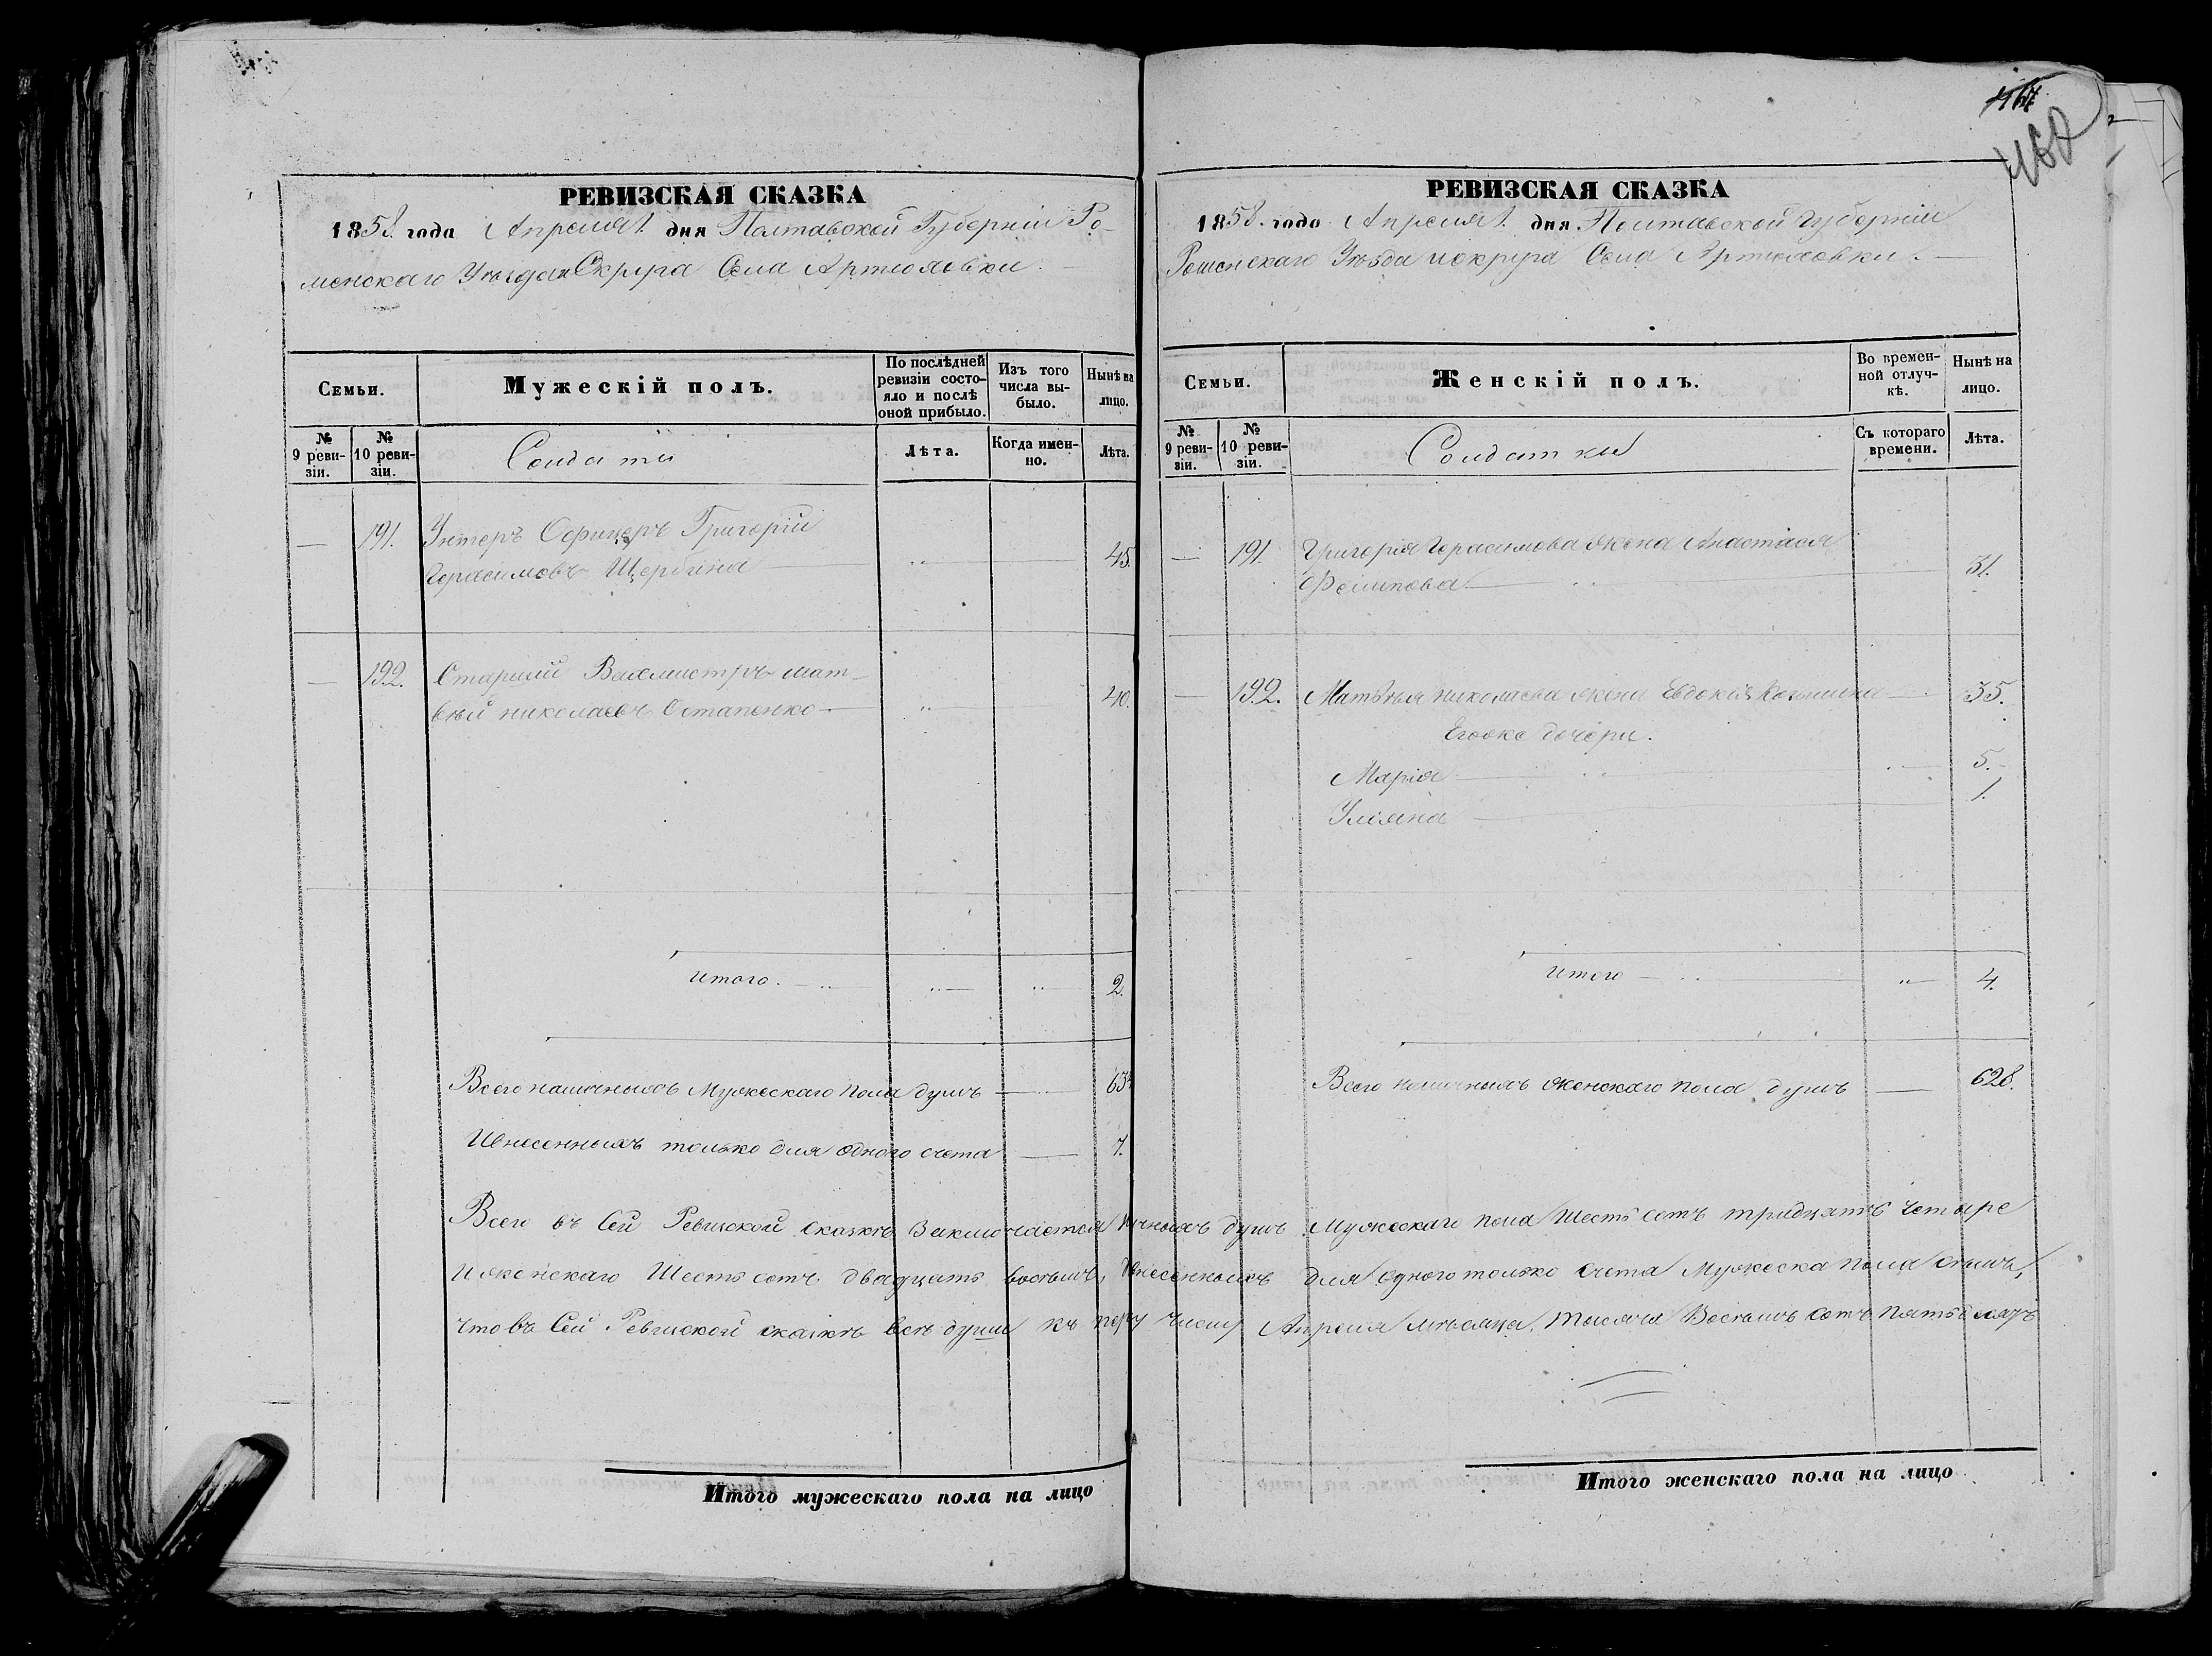 467
460
РЕВИЗСКАЯ СКАЗКА
1858. года Апреля 1. дня Полтавской Губерніи Ро-
менскаго Уѣзда и Округа Села Артюховки.
Семьи.
Мужескій полъ.
По послѣдней ревизіи состо-яло и послѣ оной прибыло.
Изъ того числа вы-было.
Нынѣ на лицо.
№ 9 реви-зіи.
№ 10 реви-зіи.
Солдаты
Лѣта.
Когда имен-но.
Лѣта.
— 191. Унтеръ Офицеръ Григорій
Герасимовъ Щербина — 45.
— 192. Старшій Вахмистръ Мат-
вѣй Николаевъ Остапенко — 40.
Итого. — 2.
Всего наличныхъ Мужескаго пола душъ — 63
Внесенныхъ только для одного счета — 7.
РЕВИЗСКАЯ СКАЗКА
1858. года Апреля 1. дня Полтавской Губерніи
Роменскаго Уѣзда и округа Села Артюховки. —
Семьи.
Женскій полъ.
Во времен-ной отлуч-кѣ.
Нынѣ на лицо.
№ 9 реви-зіи.
№ 10 реви-зіи.
Солдатки
Съ котораго времени.
Лѣта.
— 191. Григорія Герасимова жена Анастасія
— 31.
— 192. Матвѣя Николаева жена Евдокія — 35.
Егоже дочери.
Марія — 5.
Уліяна — 1.
Итого — 4.
Всего наличныхъ женскаго пола душъ — 628.
Всего въ Сей Ревизской сказкѣ Заключается душъ Мужескаго пола Шесть сотъ тридцать четыре
и женскаго Шесть сотъ двадцать восьмь, внесенныхъ для одного только счета Мужеска пола
что въ Сей Ревизской сказкѣ всѣ души къ числу Апреля мѣсяца, тысяча Восемь сотъ Пятьдесятъ
Итого мужескаго пола на лицо
Итого женскаго пола на лицо